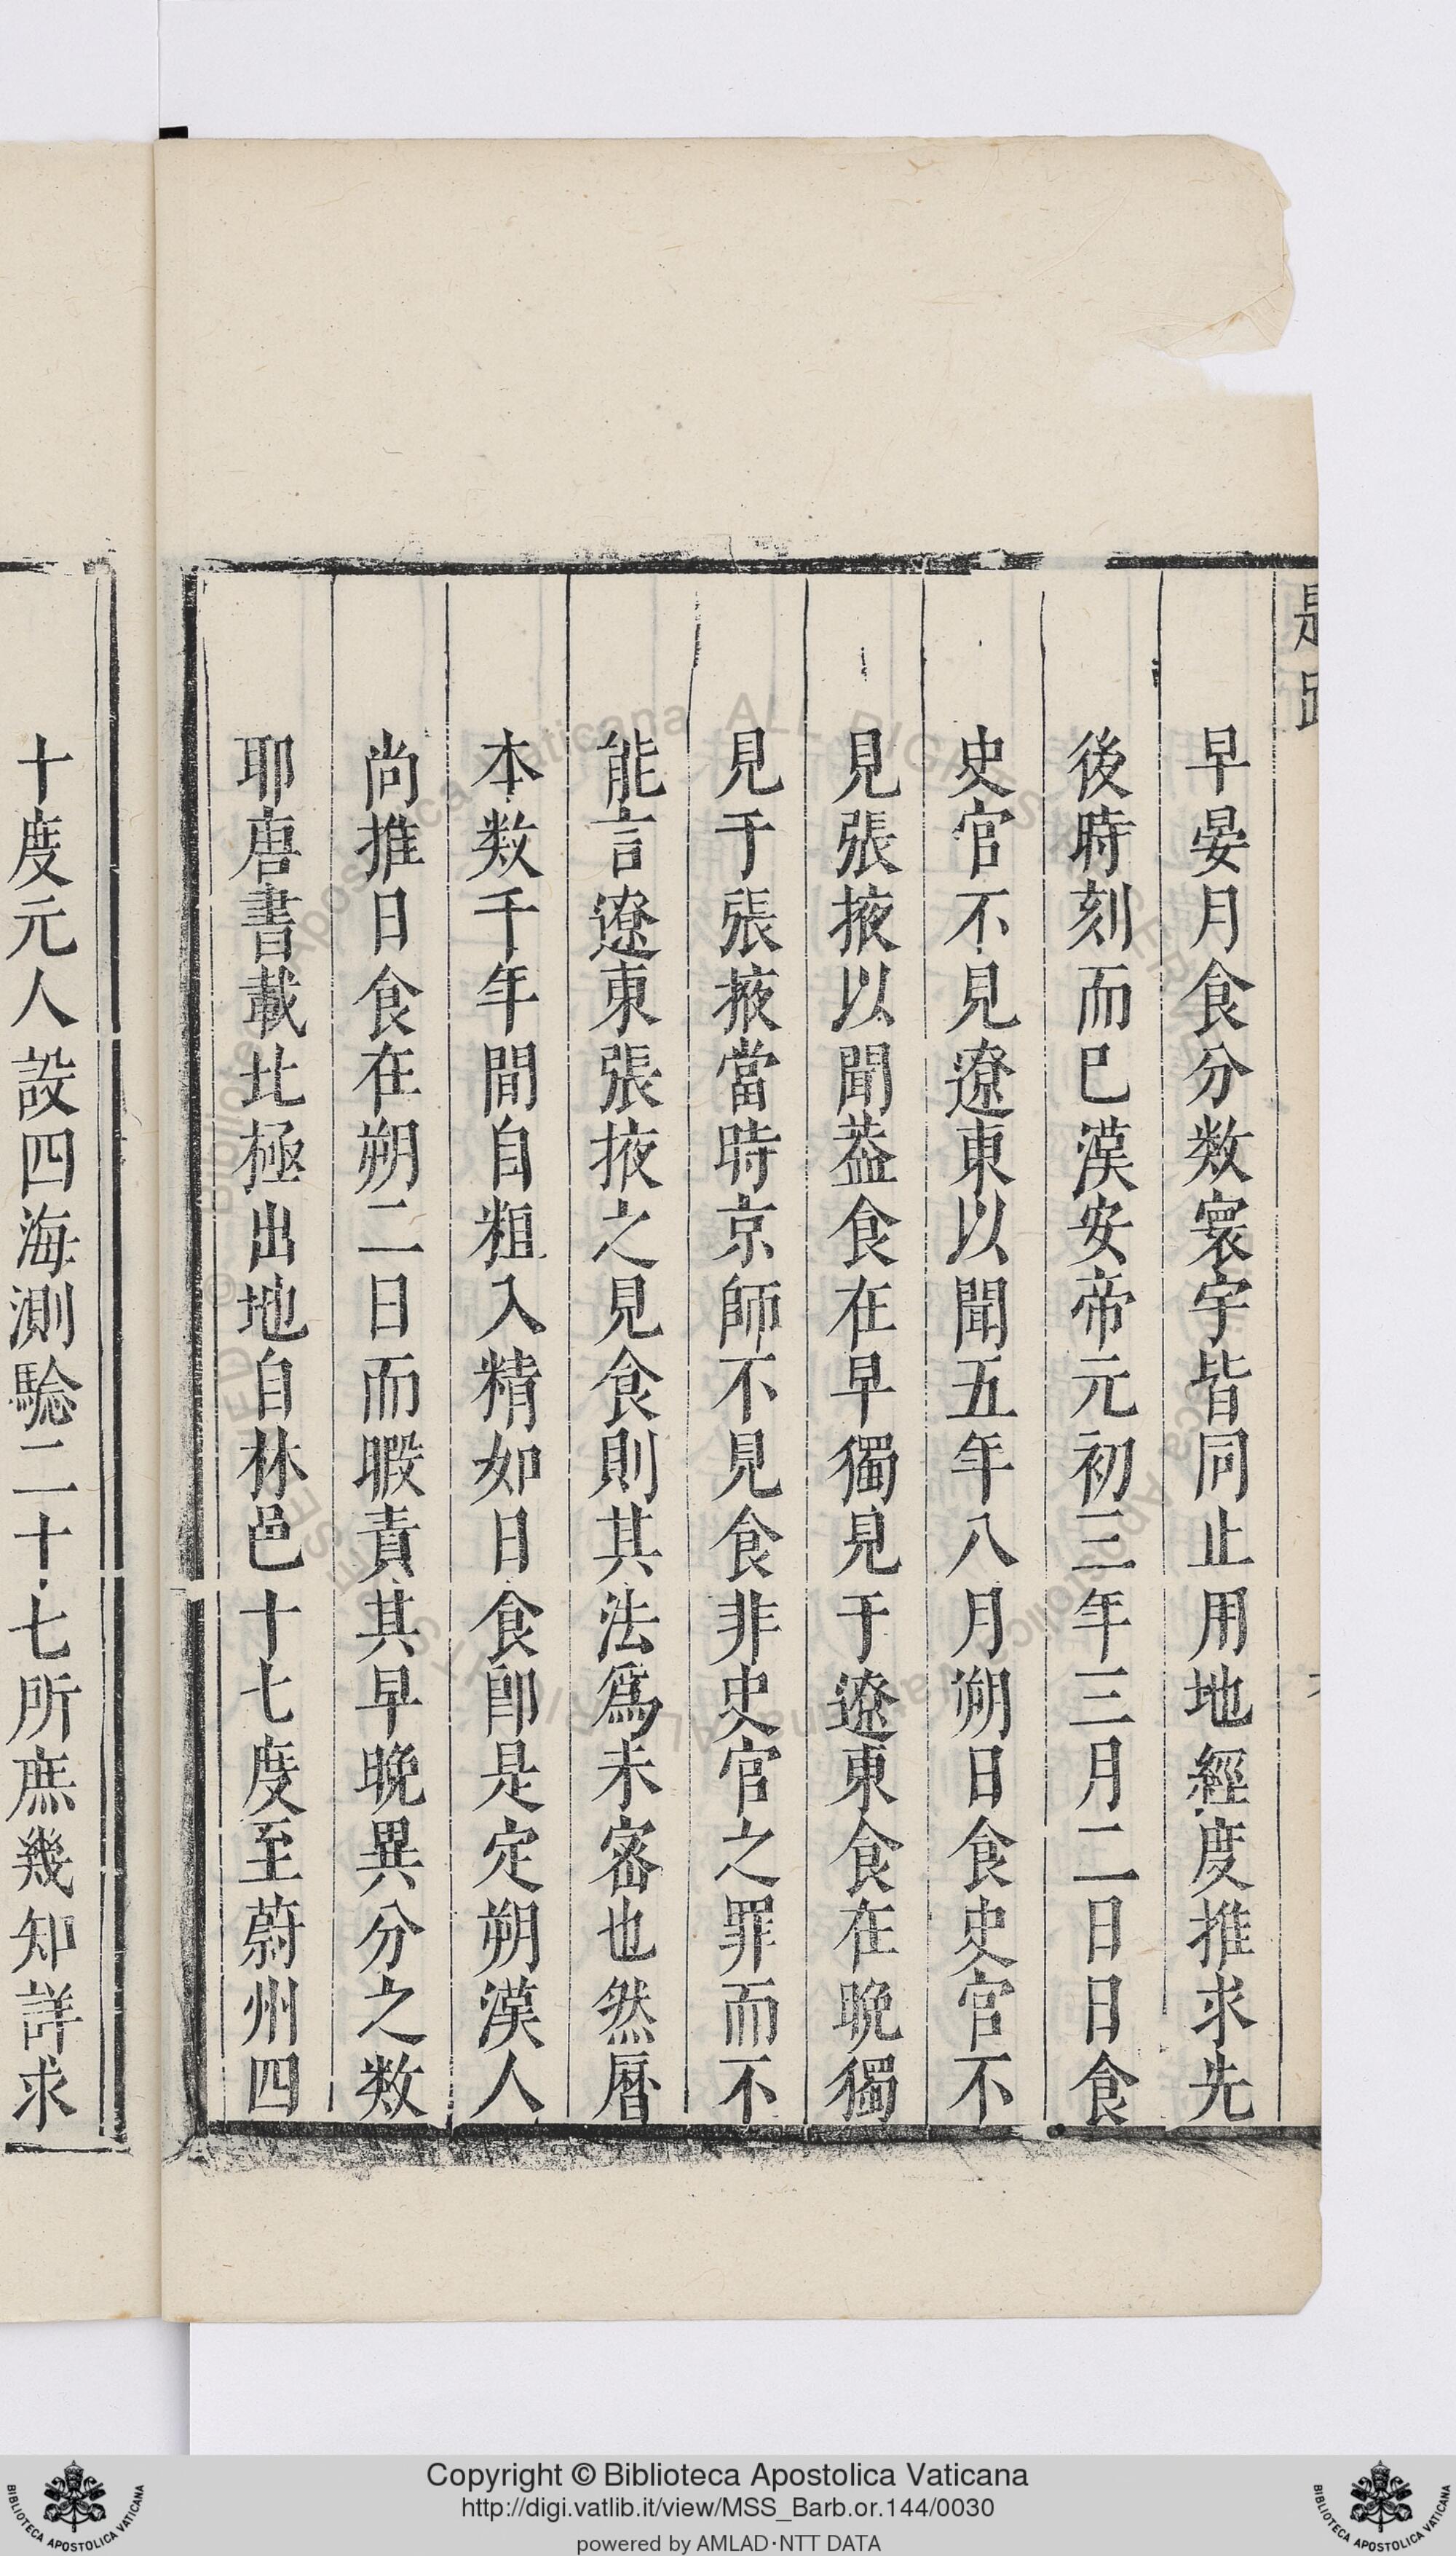 早晏月食分数寰宇皆同止用地經度推求先
後時刻而巳漢安帝元初三年三月二日日食
史官不見遼東以聞五年八月朔日食史官不
見張掖以聞葢食在早獨見于遼東食在晚獨
見于張掖當時京師不見食非史官之罪而不
能言遼東張掖之見食則其法爲未密也然曆
本数千年間自粗入精如日食卽是定朔漢人
尚推日食在朔二日而暇責其早晚異分之数
耶唐書載北極出地自林邑十七度至蔚州四
十度元人設四海測驗二十七所庶幾知詳求
Copyright © Biblioteca Apostolica Vaticana
http://digi.vatlib.it/view/MSS_Barb.or.144/0030
powered by AMLAD·NTT DATA
BIBLIOTECA APOSTOLICA VATICANA
BIBLIOTECA APOSTOLICA VATICANA